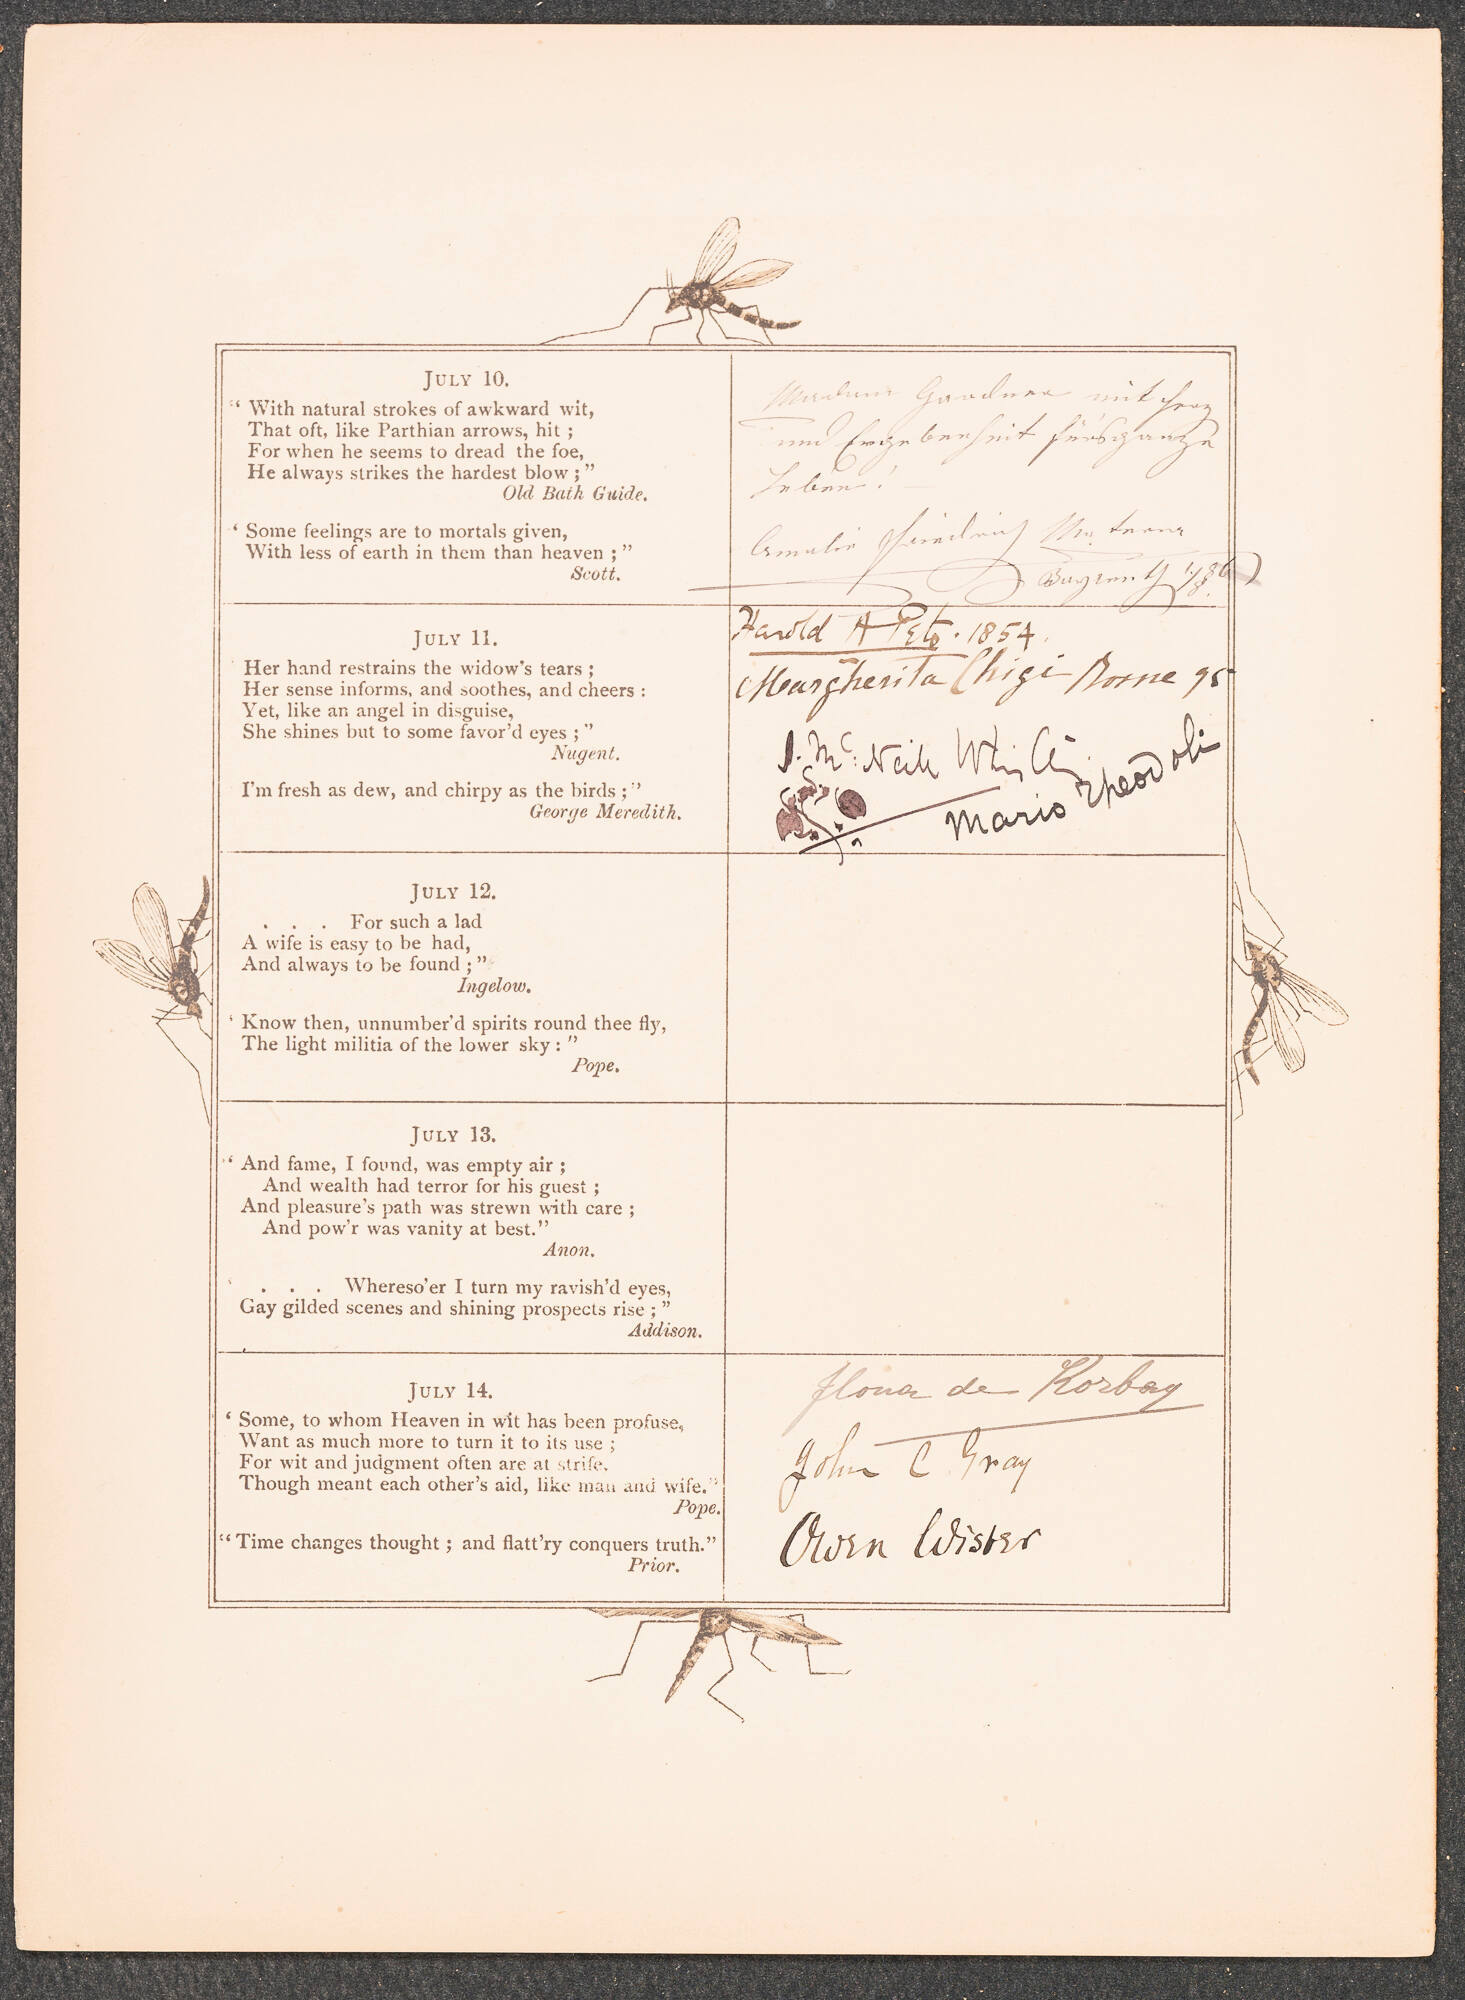 JULY 10.
“ With natural strokes of awkward wit,
That oft, like Parthian arrows, hit ;
For when he seems to dread the foe,
He always strikes the hardest blow ; ”
Old Bath Guide.
‘ Some feelings are to mortals given,
With less of earth in them than heaven ; ”
Scott.
Madame Gardner mit Herz
und Ergebenheit fürs ganze
Leben !
Amalie Friedrich Materna
Bayreuth
JULY 11.
Her hand restrains the widow's tears ;
Her sense informs, and soothes, and cheers :
Yet, like an angel in disguise,
She shines but to some favor'd eyes ; ”
Nugent.
I'm fresh as dew, and chirpy as the birds ; ”
George Meredith.
Harold A Peto. 1854.
Margherita Chigi Rome 95
J. Mc: Neill Whistler
Mario Theodoli
JULY 12.
. . . For such a lad
A wife is easy to be had,
And always to be found ; ”
Ingelow.
‘ Know then, unnumber'd spirits round thee fly,
The light militia of the lower sky : ”
Pope.
JULY 13.
“ And fame, I found, was empty air ;
And wealth had terror for his guest ;
And pleasure's path was strewn with care ;
And pow'r was vanity at best.”
Anon.
‘ . . . Whereso'er I turn my ravish'd eyes,
Gay gilded scenes and shining prospects rise ; ”
Addison.
JULY 14.
‘ Some, to whom Heaven in wit has been profuse,
Want as much more to turn it to its use ;
For wit and judgment often are at strife,
Though meant each other's aid, like man and wife.”
Pope.
“ Time changes thought ; and flatt'ry conquers truth.”
Prior.
Ilona de Korbay
John C Gray
Owen Wister